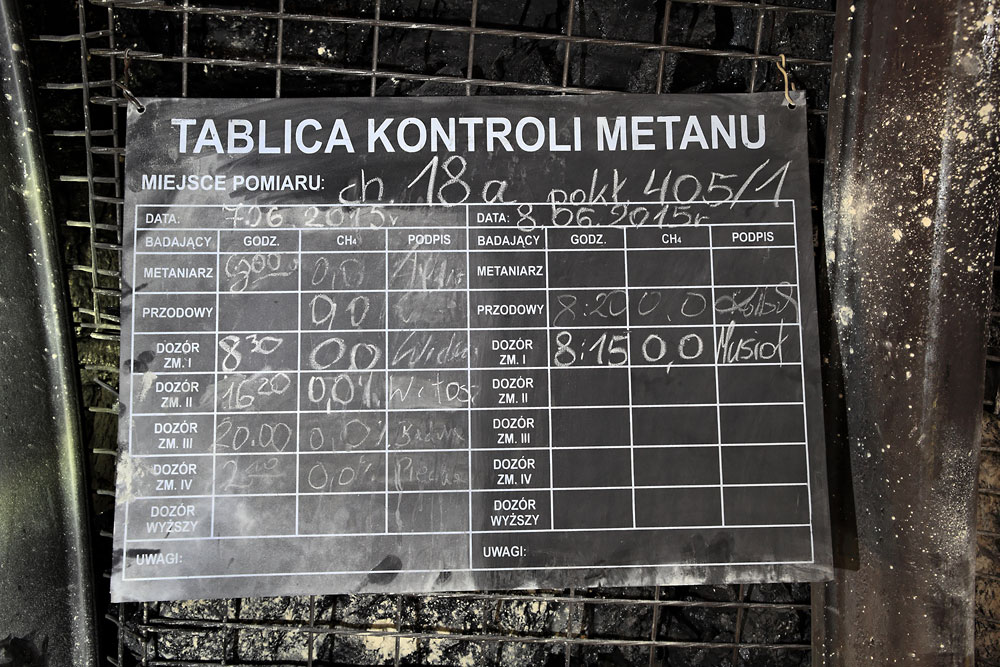 TABLICA KONTROLI METANU
MIEJSCE POMIARU: ch. 18a pokł. 405/1
DATA: 7.06 2015r DATA: 8.06.2015r
BADAJĄCY GODZ. CH4 PODPIS BADAJĄCY GODZ. CH4 PODPIS
METANIARZ 0,0 METANIARZ
PRZODOWY 0,0 PRZODOWY 8:20 0,0
DOZÓR ZM. I 8 30 0,0 DOZÓR ZM. I 8:15 0,0 Musioł
DOZÓR ZM. II 16 20 0,0% Witos DOZÓR ZM. II
DOZÓR ZM. III 20.00 0,0% DOZÓR ZM. III
DOZÓR ZM. IV 0,0% DOZÓR ZM. IV
DOZÓR WYŻSZY DOZÓR WYŻSZY
UWAGI: UWAGI: